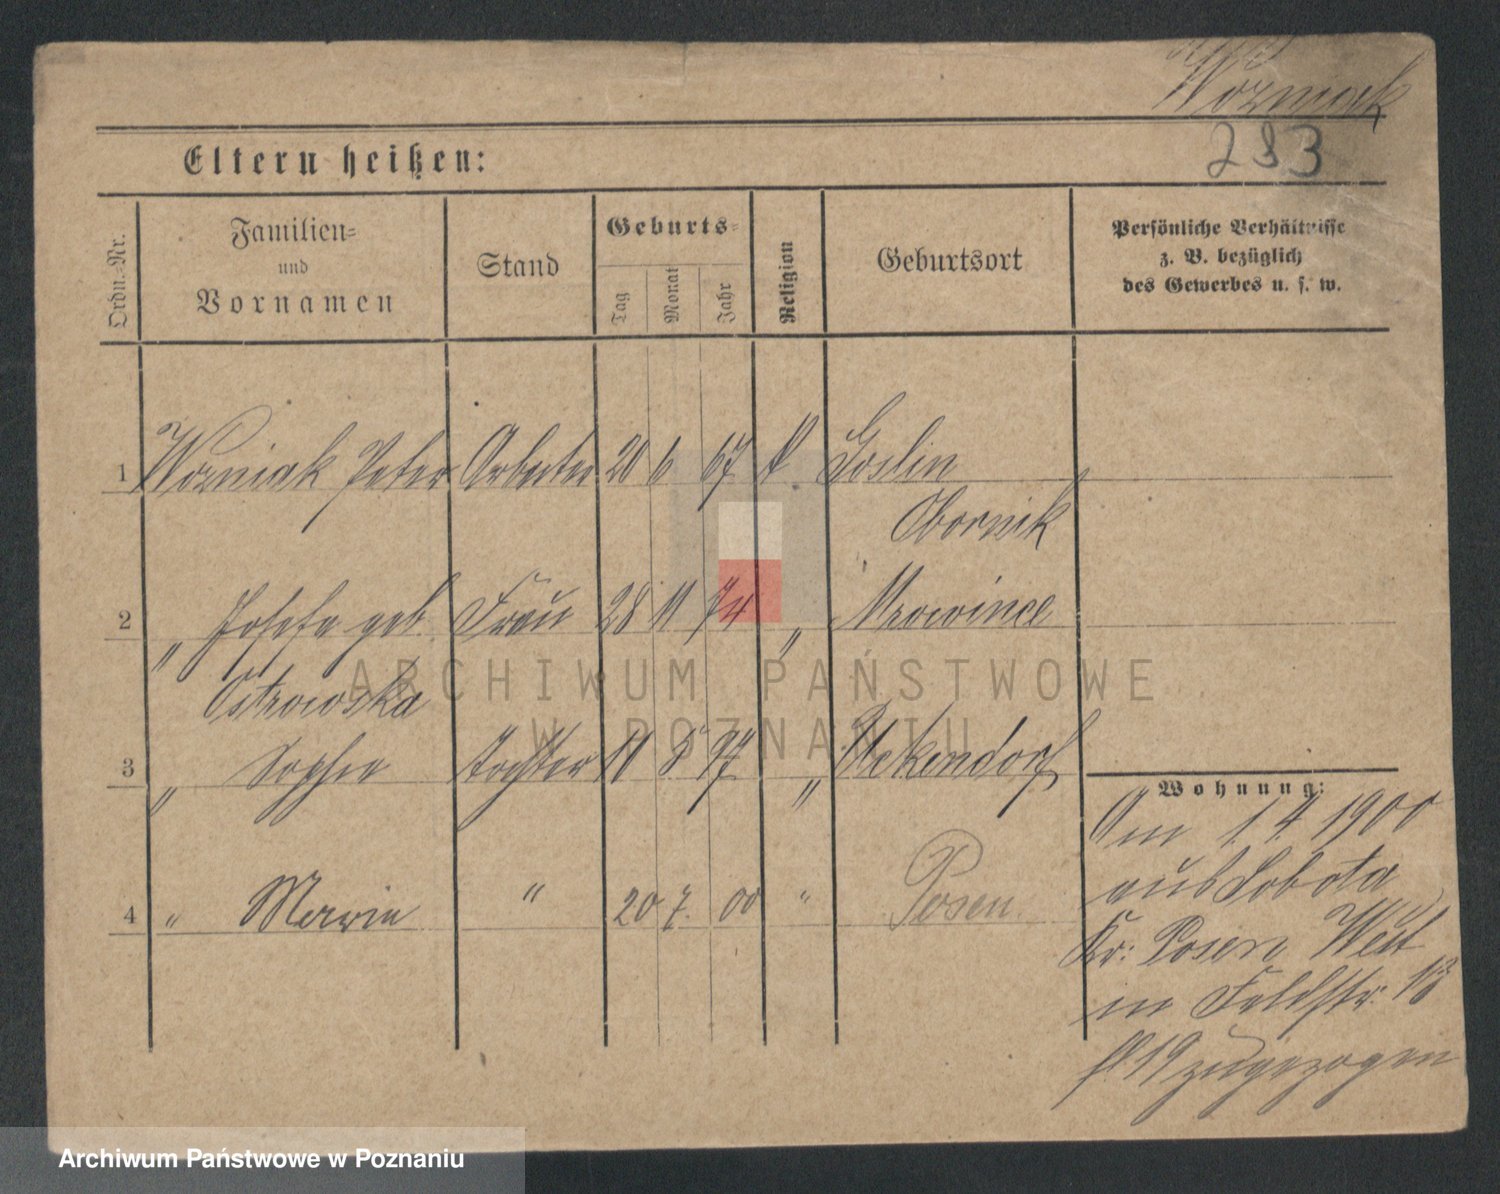 Wozniak
283
Eltern heißen:
Ordn.-Nr.
Familien-
und
Vornamen
Stand
Geburts-
Tag
Monat
Jahr
Religion
Geburtsort
Persönliche Verhältnisse
z. B. bezüglich
des Gewerbes u. s. w.
1 Wozniak Peter Arbeiter 20 6 67 k Goslin
Obornik
2 " Josefa geb. Frau 28 11 74 " Mrowince
Ostrowska
3 " Sophie Tochter 11 5 97 " Uekendorf
Wohnung:
Am 1.4.1900
aus Sobota
4 " Marie " 20 7. 00 " Posen
Kr: Posen West
n Feldstr. 13
zugezogen
ARCHIWUM PAŃSTWOWE
W POZNANIU
Archiwum Państwowe w Poznaniu